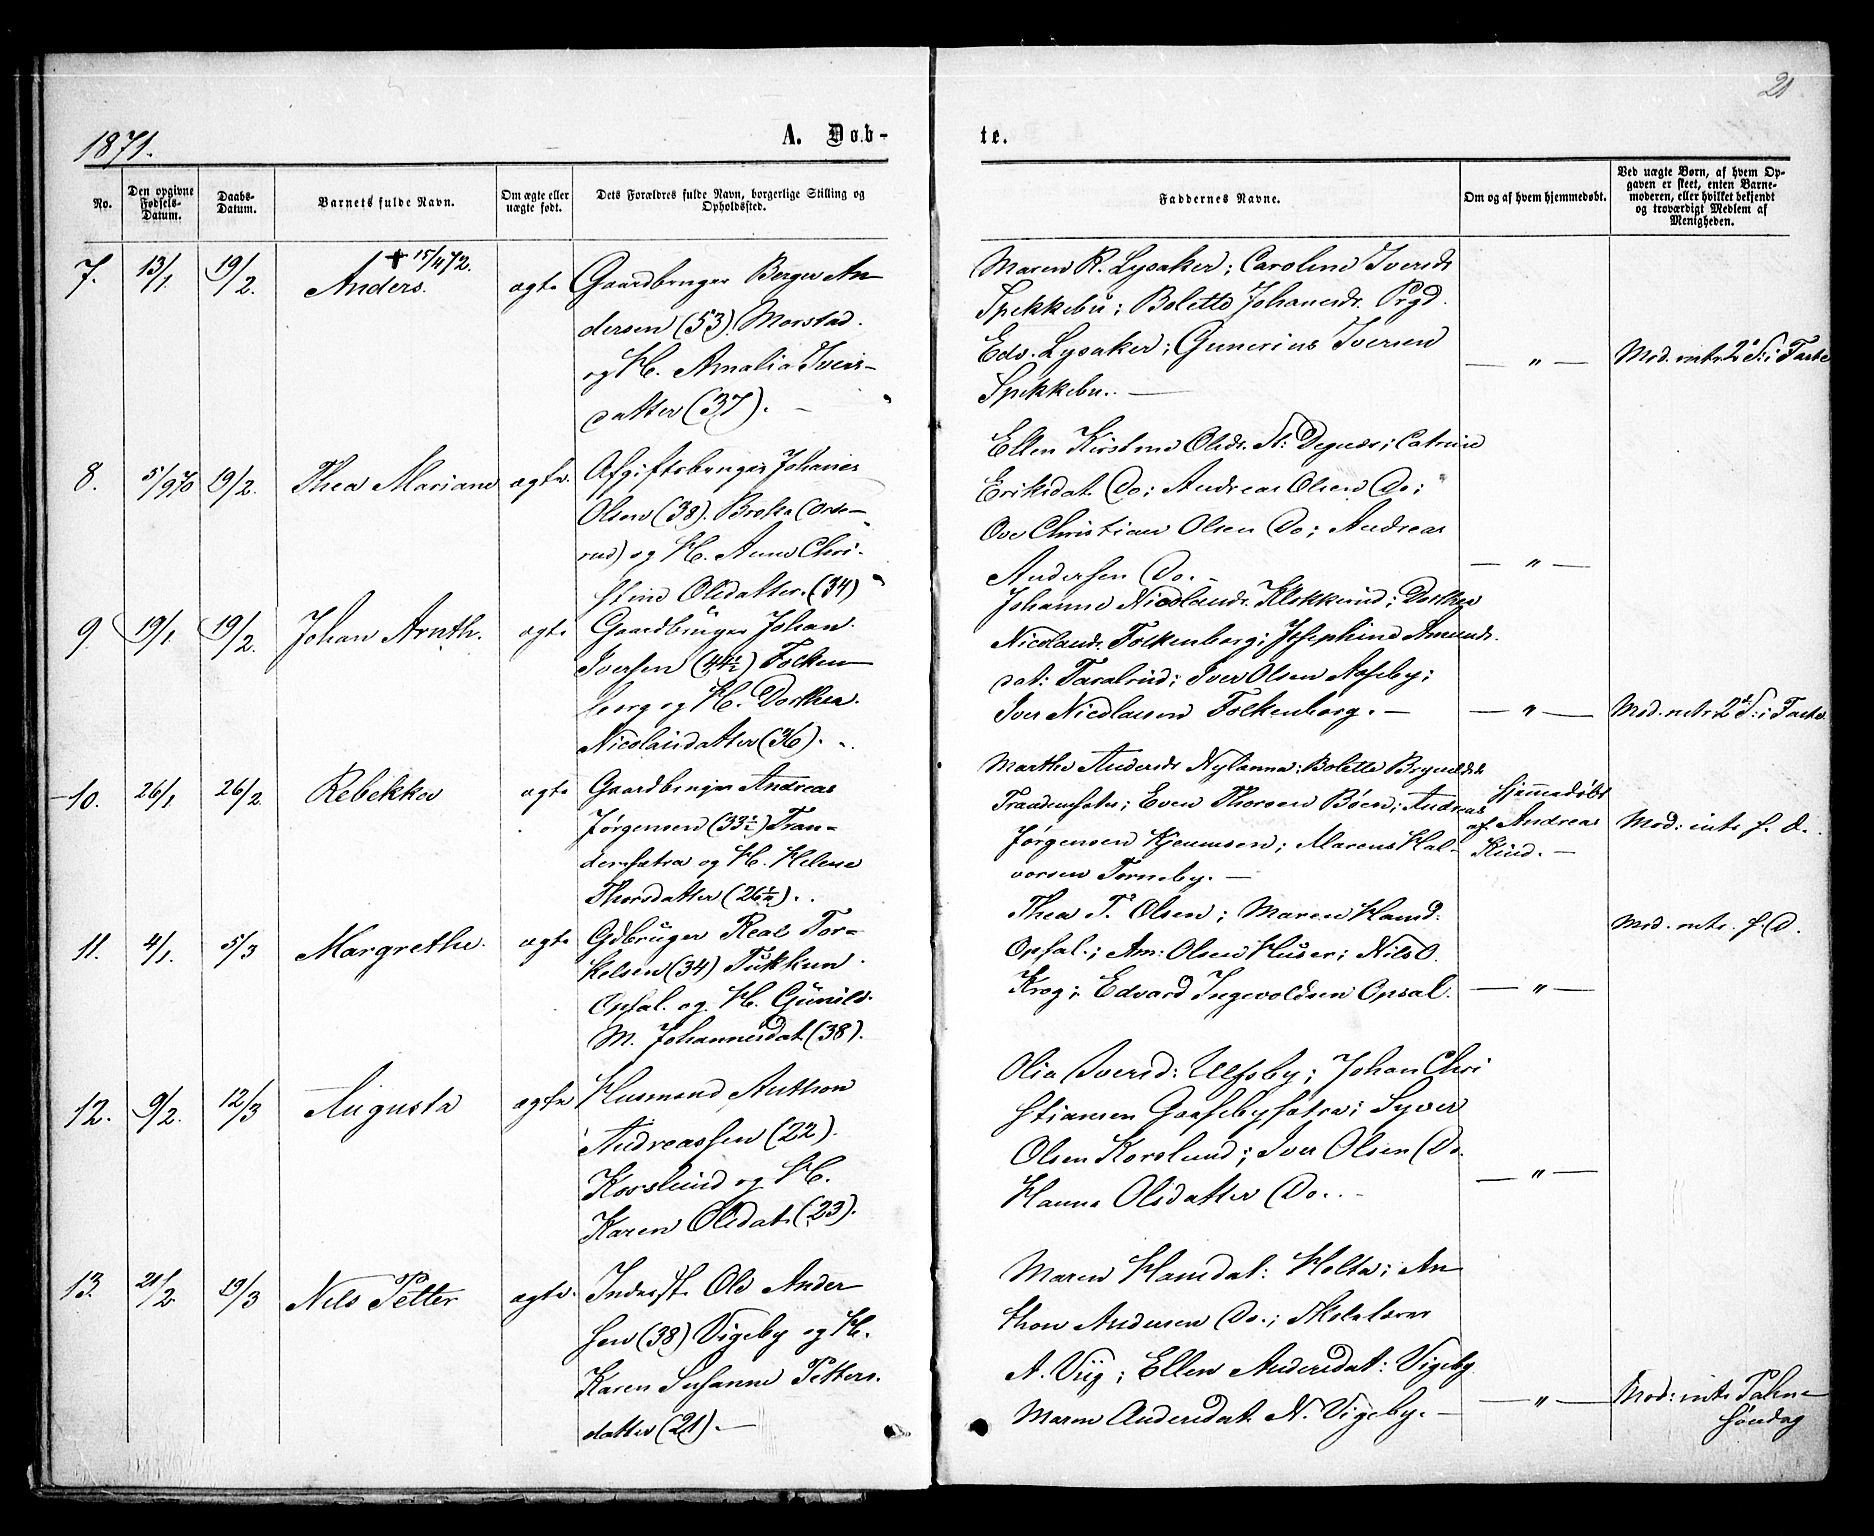 21
1871.
A. Døb-
te.
No.
Den opgivne Fødsels-Datum.
Daabs-Datum.
Barnets fulde Navn.
Om ægte eller uægte født.
Dets Forældres fulde Navn, borgerlige Stilling og Opholdssted.
Faddernes Navne.
Om og af hvem hjemmedøbt.
Ved uægte Børn, af hvem Op-
gaven er skeet, enten Barne-
moderen, eller hvilket bekjendt
og troværdigt Medlem af
Menigheden.
7. 13/1 19/2. Anders. + 15/4 72. ægte
Gaardbruger Berger An
dersen (53). Morstad.
og H. Amalia Ivers-
datter (37). -
Maren R. Lysaker; Caroline Iversdr
Spekkebu; Bolette Johanesdr. Prgd.
Edv. Lysaker; Gunerius Iversen
Spekkebu. -
— " —
Mod. intr. 2d S: i Faste
8. 5/9 70 19/2. Thea Mariane ægte.
Afgiftsbruger Johanes
Olsen (38). Breka (Orde-
rud) og H. Anne Chri-
stine Olsdatter. (34)
Ellen Kirstine Olsdr. St: Degnes; Catrine
Eriksdat. Do; Andreas Olsen Do;
Ove Christian Olsen Do; Andreas
Andersen Do. -
— " —
9. 19/1 19/2. Johan Arnth. ægte
Gaardbruger Johan
Iversen (44½) Folken
borg og H. Dorthea
Nicolaidatter (36). -
Johanne Nicolaidr. Klokkerud; Dorthea
Nicolaidr. Folkenborg; Josephine Amunds.
dat: Taralrud; Iver Olsen Næseby;
Iver Nicolaisen Folkenborg. -
— " —
Mod. intr. 2d S: i Faste.
10. 26/1 26/2. Rebekka ægte
Gaardbruger Andreas
Jørgensen (33½) Tran-
demsætra og H. Helene
Thorsdatter (26½).
Marthe Andersdr Nylanna; Bolette
Trandemsæter; Even Thorsen Bøen; Andreas
Jørgensen Kjenmoen; Marcus Hal-
vorsen Torneby. -
Hjemmedøbt
af Andreas
Kind. -
Mod: intr. s. d.
11. 4/1. 5/3 Margrethe. ægte
Gdbruger Real Tor-
kelsen (34) Tukkun
Opsal. og H. Gunild.
M. Johannesdat. (38).
Thea T. Olsen; Maren Hansd:
Opsal.; Am: Olsen Huser; Nils O.
Krog; Edvard Ingevoldsen Opsal.
— " —
Mod. intr. s. D.
12. 9/2. 12/3 Augusta ægte
Husmand Anthon
Andreassen (22).
Korslund og H.
Karen Olsdat. (23).
Olia Iversd: Ulfsby; Johan Chri
stiansen Gaasebysætra; Syver
Olsen Korslund; Iver Olsen Do.
Hanna Olsdatter Do. -
— " —
13. 21/2. 19/3 Nils Petter ægte.
Inderst. Ole Ander
sen (38) Vigeby og H.
Karen Susanne Petters.
datter (21). -
Maren Hansdat: Holta; An
thon Andersen Do.; Skolelærer
A. Viig; Ellen Andersdat: Vigeby.
Maren Andersdat. N. Vigeby. -
— " —
Mod: intr. Palme
søndag